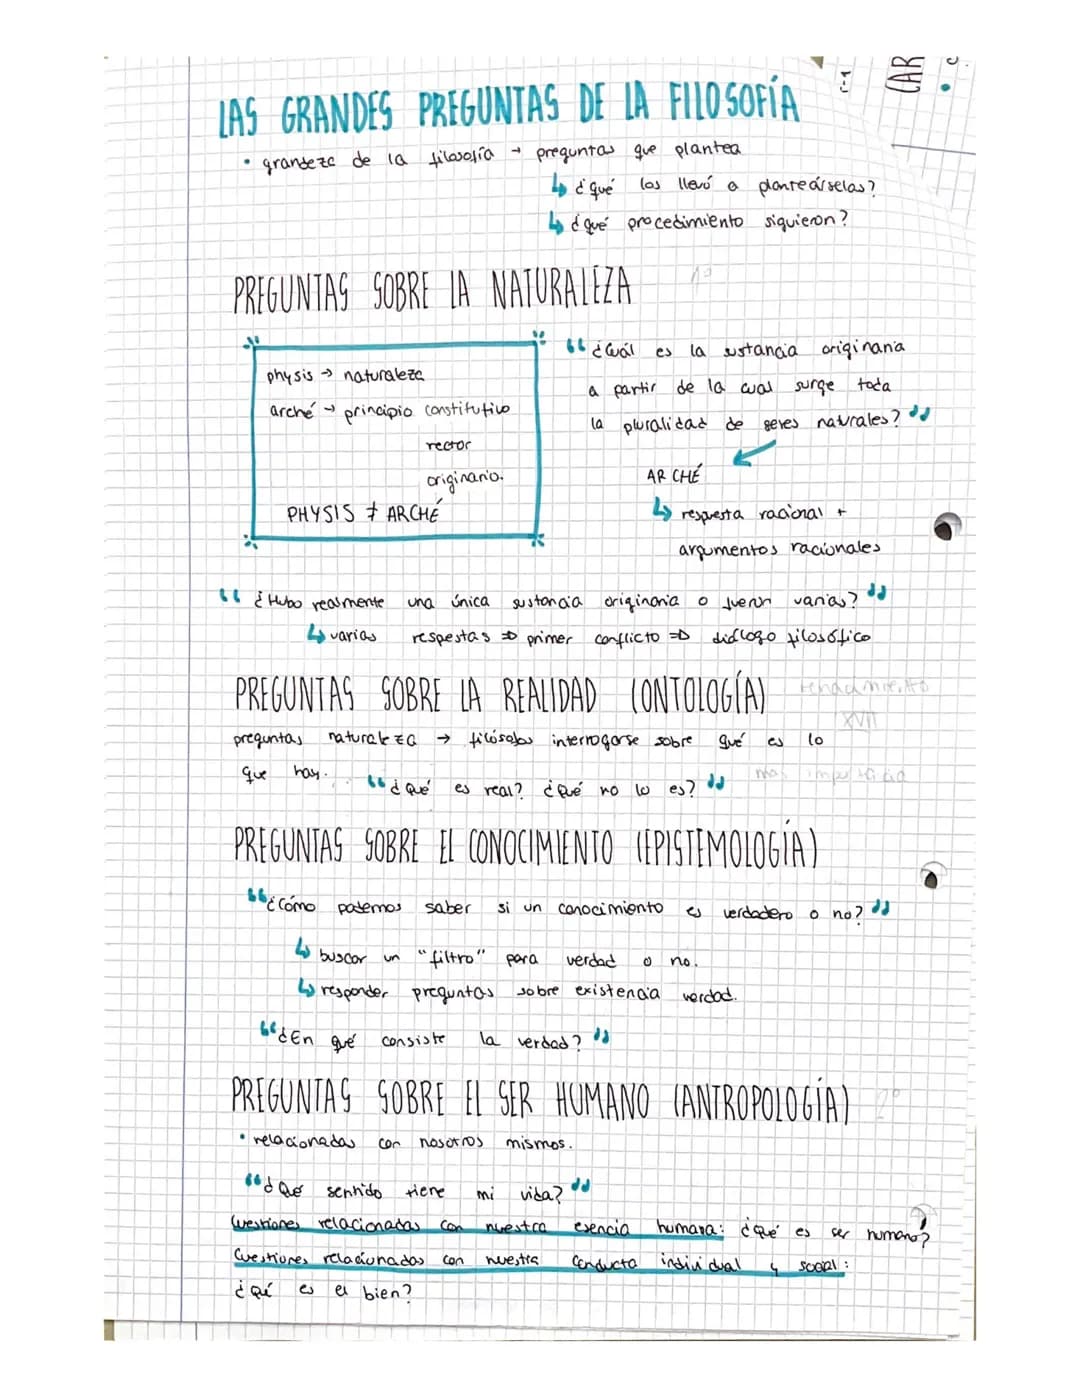 LAS GRANDES PREGUNTAS DE LA FILOSOFÍA
• grandeza de la filosofía → preguntas que plantea
↳ ¿qué los llevó a planteárselas?
↳ ¿qué procedimiento siguieron?
PREGUNTAS SOBRE LA NATURALEZA 1º
physis → naturaleza
arché → principio constitutivo
rector
originario.
PHYSIS ≠ ARCHÉ
“¿Cuál es la sustancia originaria
a partir de la cual surge toda
la pluralidad de seres naturales?”
ARCHÉ
↳ respuesta racional +
argumentos racionales
“¿Hubo realmente una única sustancia originaria o fueron varias?”
↳ varias respestas ⇒ primer conflicto ⇒ diálogo filosófico
PREGUNTAS SOBRE LA REALIDAD (ONTOLOGÍA) renacimiento
XVII
preguntas naturaleza → filósofos interrogarse sobre qué es lo
que hay. “¿Qué es real? ¿Qué no lo es?” mas
PREGUNTAS SOBRE EL CONOCIMIENTO (EPISTEMOLOGÍA)
“¿Cómo podemos saber si un conocimiento es verdadero o no?”
↳ buscar un “filtro” para verdad o no.
↳ responder preguntas sobre existencia verdad.
“¿En qué consiste la verdad?”
PREGUNTAS SOBRE EL SER HUMANO (ANTROPOLOGÍA) 2º
• relacionadas con nosotros mismos.
“¿Qué sentido tiene mi vida?”
Cuestiones relacionadas con nuestra esencia humana: ¿qué es ser humano?
Cuestiones relacionadas con nuestra conducta individual y social:
¿qué es el bien?